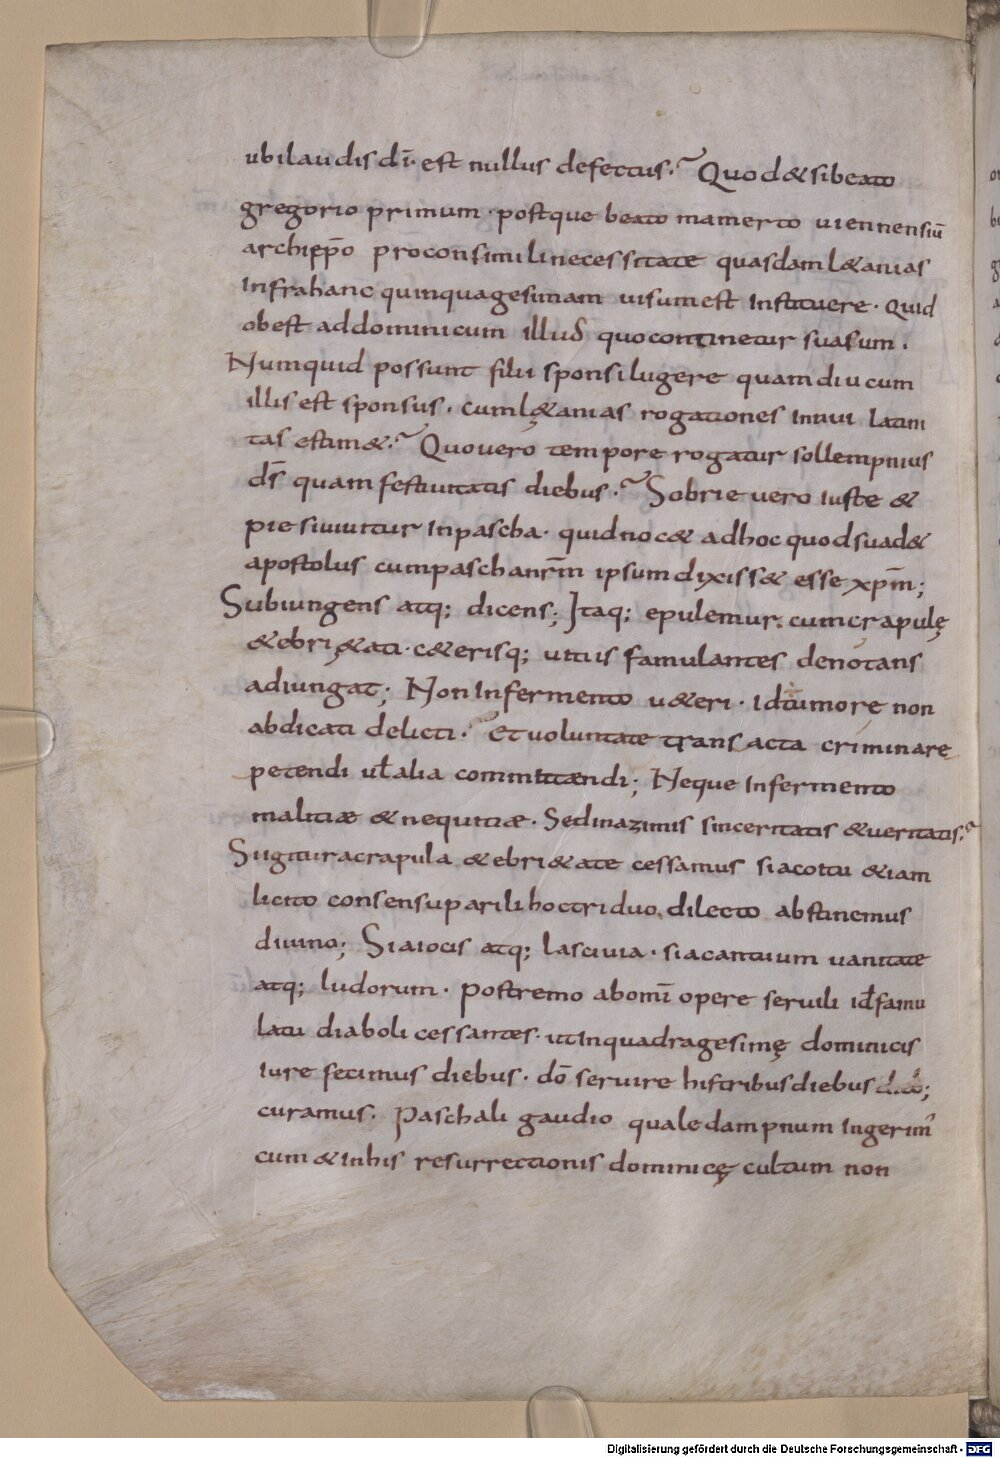 ubi laudis dī· est nullus defectus·? Quod & si beato
gregorio primum· postque beato mamerto uiennensiū
archiep̄o pro consimili necessitate quasdam l&anias
Infra hanc quinquagesimam uisum est Instituere· Quid
obest ad dominicum illud quo continetur suasum·
Numquid possunt filii sponsi lugere quamdiu cum
illis est sponsus· cum l&anias rogationes Inuui latini
tas estim&·? Quo uero tempore rogatur sollempnius
d̄s quam festiuitatis diebus·? Sobrie uero iuste &
pie si uiuitur In pascha· quid noc& ad hoc quod suad&
apostolus cum pascha nr̄m ipsum dixiss& esse xp̄m;
Subiungens atq; dicens; Itaq; epulemur· cum crapulę
& ebri&ati· c&erisq; uitiis famulantes denotans
adiungat; Non In fermento u&eri· id tumore non
abdicati delicti·? Et uoluntate transacta criminare
petendi ul̄ alia committendi; Neque In fermento
malitiæ & nequitiæ· Sed In azimis sinceritatis & ueritatis·?
Si igitur a crapula & ebri&ate cessamus si a coitu &iam
licito consensu parili hoc triduo dilecto abstinemus
diuino; Si a iocis atq; lasciuia· si a cantuum uanitate
atq; ludorum· postremo ab om̄i opere seruili id famu
latu diaboli cessantes· ut In quadragesimę dominicis
iure fecimus diebus· dō seruire his tribus diebus
curamus· Paschali gaudio quale dampnum Ingerim'
cum & In his resurrectionis dominicę cultum non
Digitalisierung gefördert durch die Deutsche Forschungsgemeinschaft - DFG